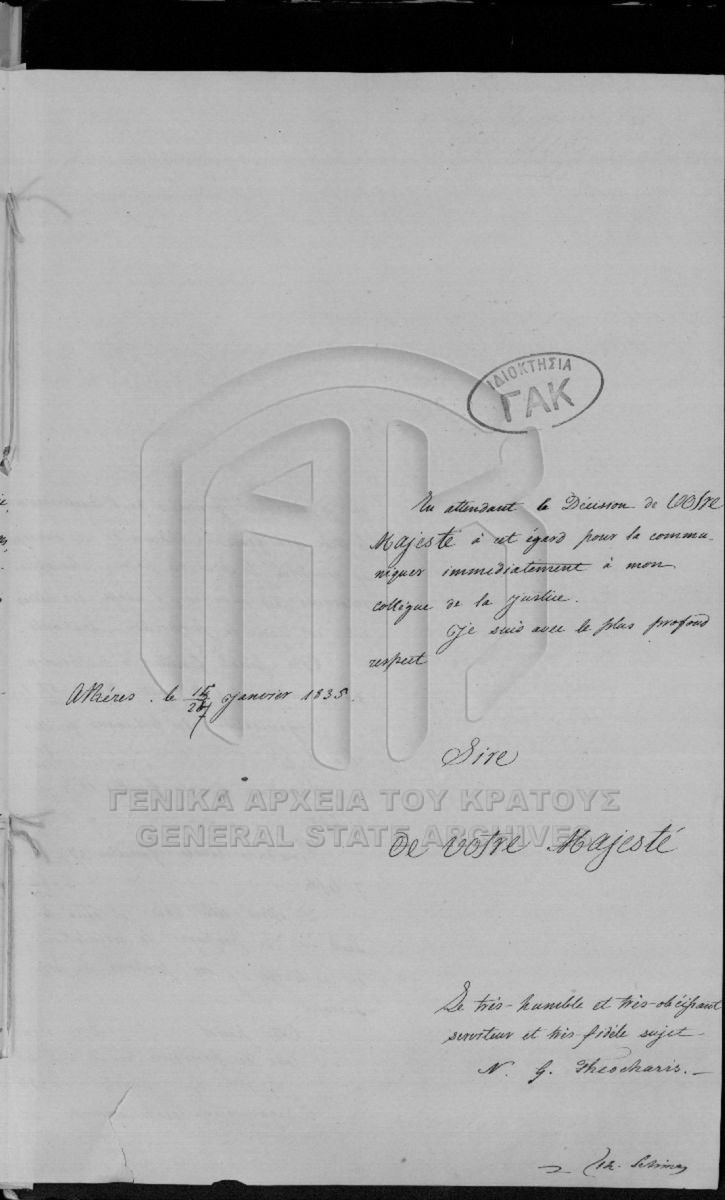 ΙΔΙΟΚΤΗΣΙΑ
ΓΑΚ
En attendant la Décision de Votre
Majesté à cet égard pour la commu-
niquer immediatement à mon
collégue de la justice.
Je suis avec le plus profond
respect
Athénes. le Janvier 1835.
Sire
ΓΕΝΙΚΑ ΑΡΧΕΙΑ ΤΟΥ ΚΡΑΤΟΥΣ
GENERAL STATE ARCHIVES
De Votre Majesté
Le très-humble et très-obéissant
serviteur et très fidéle sujet
N. G. Theocharis.